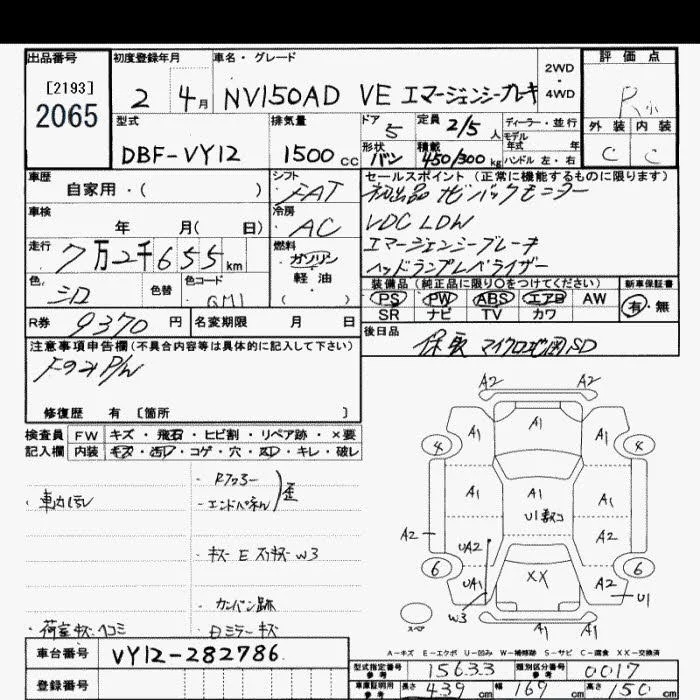 出品番号
[2193]
2065
初度登録年月
2 4月
車名・グレード
NV150AD VE エマージェンシーブレーキ
2WD
4WD
評価点
R
外装 内装
C C
型式
DBF-VY12
排気量
1500cc
ドア
5
定員 2/5人
形状
バン
積載
450/300kg
ディーラー・並行
モデル
年式 年
ハンドル 左・右
車歴
自家用・( )
シフト
FAT
車検
年 月( 日)
冷房
AC
走行
7万2千655km
燃料
ガソリン
軽油
( )
色
シロ
色替
色コード
QM1
R券
9370円
名変期限 月 日
セールスポイント(正常に機能するものに限ります)
初出品 ナビ バックモニター
VDC LDW
エマージェンシーブレーキ
ヘッドランプレベライザー
装備品(純正品に限り○をつけてください)
PS PW ABS エアB AW
SR ナビ TV カワ
新車保証書
有・無
後日品
保取 マイクロ地図SD
注意事項申告欄(不具合内容等は具体的に記入して下さい)
P/W
修復歴 有 [箇所 ]
検査員
記入欄
FW キズ・飛石・ヒビ割・リペア跡・×要
内装 キズ・汚レ・コゲ・穴・スレ・キレ・破レ
・Rフロー
・エンドパネル
歪
・キズ E スリキズ W3
・カンバン跡
・荷室キズ・ヘコミ
・日ミラーキズ
A2 A2
A1
A1 A1
4 4
A1 A1 A1
U1多数コ
A2 UA2 A2
6 6
UA1 XX A2
U1
W3
スペア
A1 A1
A-キズ E-エクボ U-凹み W-補修跡 S-サビ C-腐食 XX-交換済
車台番号
VY12-282786
登録番号
型式指定番号
参考
15633
類別区分番号
参考
0017
車庫証明用
参考
長さ 439cm 幅 169cm 高さ 150cm